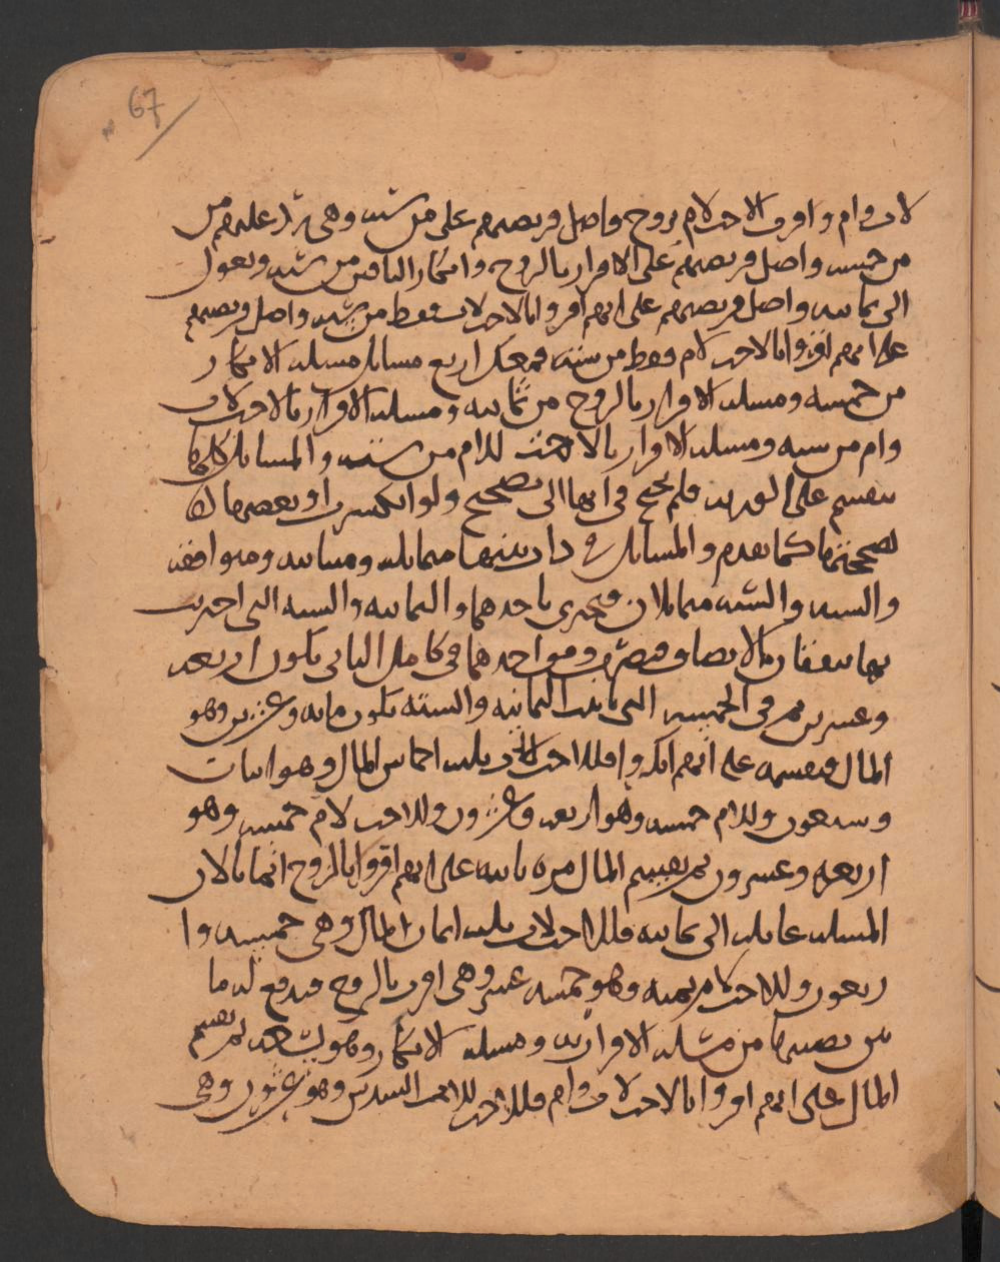 67
لاب وام واقرت الاخت لام بزوج واصل فريضتهم على من سته وهي ترد عليهم من
من خمسه واصل فريضتهم على الاقرار بالزوج وانكار الباقين من سته وتعول
الى ثمانيه واصل فريضتهم على انهم اقروا بالاخت لاب فقط من سته واصل فريضتهم
على انهم اقروا بالاخت لام فقط من سته فمعك اربع مسايل مسله الانكار
من خمسه ومسله الاقرار بالزوج من ثمانيه ومسله الاقرار بالاخت لاب
وام من سته ومسله الاقرار بالاخت للام من سته والمسايل كلها
تنقسم على الورثه فلم تحتج في ايها الى تصحيح ولو انكسرت او بعضها
لصححتها كما تقدم والمسايل في ذا بينها مماثله ومباينه وموافقه
والسته والسته متماثلان فتجتزي باحدهما والثمانيه والسته التي اجتزيت
بها متفقان بالانصاف فتضرب وفق احدهما في كامل الثاني يكون اربعه
وعشرين ثم في الخمسه التي باينت الثمانيه والسته يكون مايه وعشرين وهو
المال فتقسمه على انهم انكروا فللاخت لاب ثلاثه اخماس المال وهو اثنان
وسبعون وللام خمسه وهو اربعه وعشرون وللاخت لام خمسه وهو
اربعه وعشرون ثم تقسيم المال مره ثانيه على انهم اقروا بالزوج انها بالان
المسله عايله الى ثمانيه فللاخت لاب ثلثه اثمان المال وهي خمسه وا
ربعون وللاخت لام ثمنه وهو خمسه عشر وهي اقرت بالزوج فتدفع له ما
بين نصيبها من مسله الاقرار به ومسله الانكار وهو تسعه ثم تقسم
المال على انهم اقروا بالاخت لاب وام فللاخت للام السدس وهو عشرون وهي